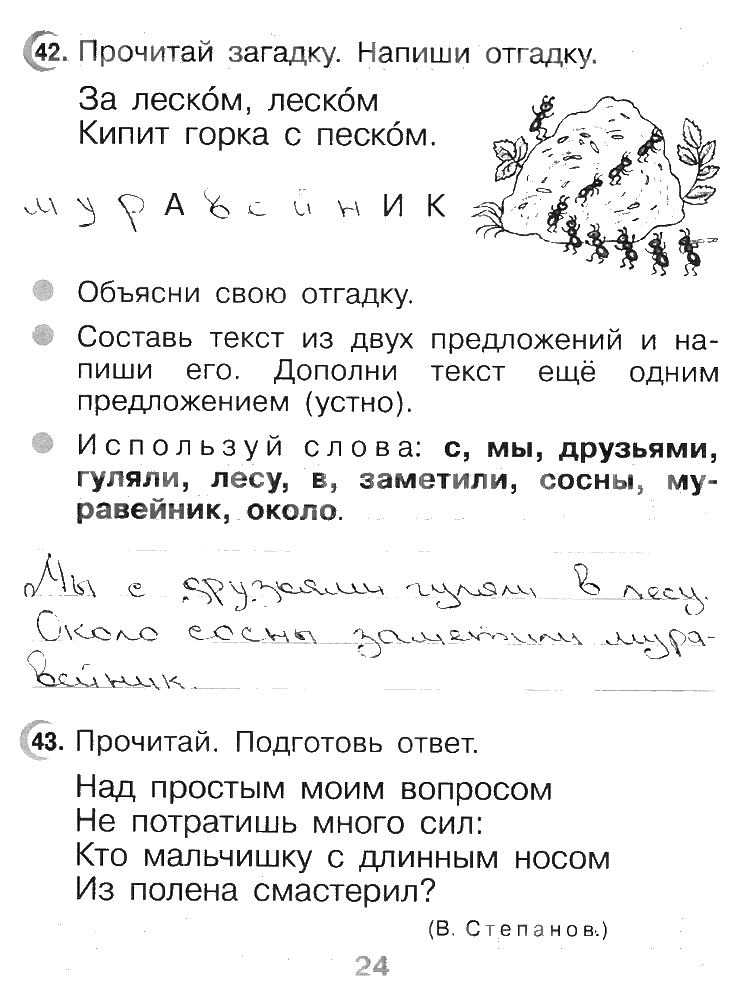 42. Прочитай загадку. Напиши отгадку.
За леско́м, леско́м
Кипит горка с песко́м.
м у р А в е й н И К
Объясни свою отгадку.
Составь текст из двух предложений и на-
пиши его. Дополни текст ещё одним
предложением (устно).
Используй слова: с, мы, друзьями,
гуляли, лесу, в, заметили, сосны, му-
равейник, около.
Мы с друзьями гуляли в лесу.
Около сосны заметили мура-
вейник.
43. Прочитай. Подготовь ответ.
Над простым моим вопросом
Не потратишь много сил:
Кто мальчишку с длинным носом
Из полена смастерил?
(В. Степанов.)
24